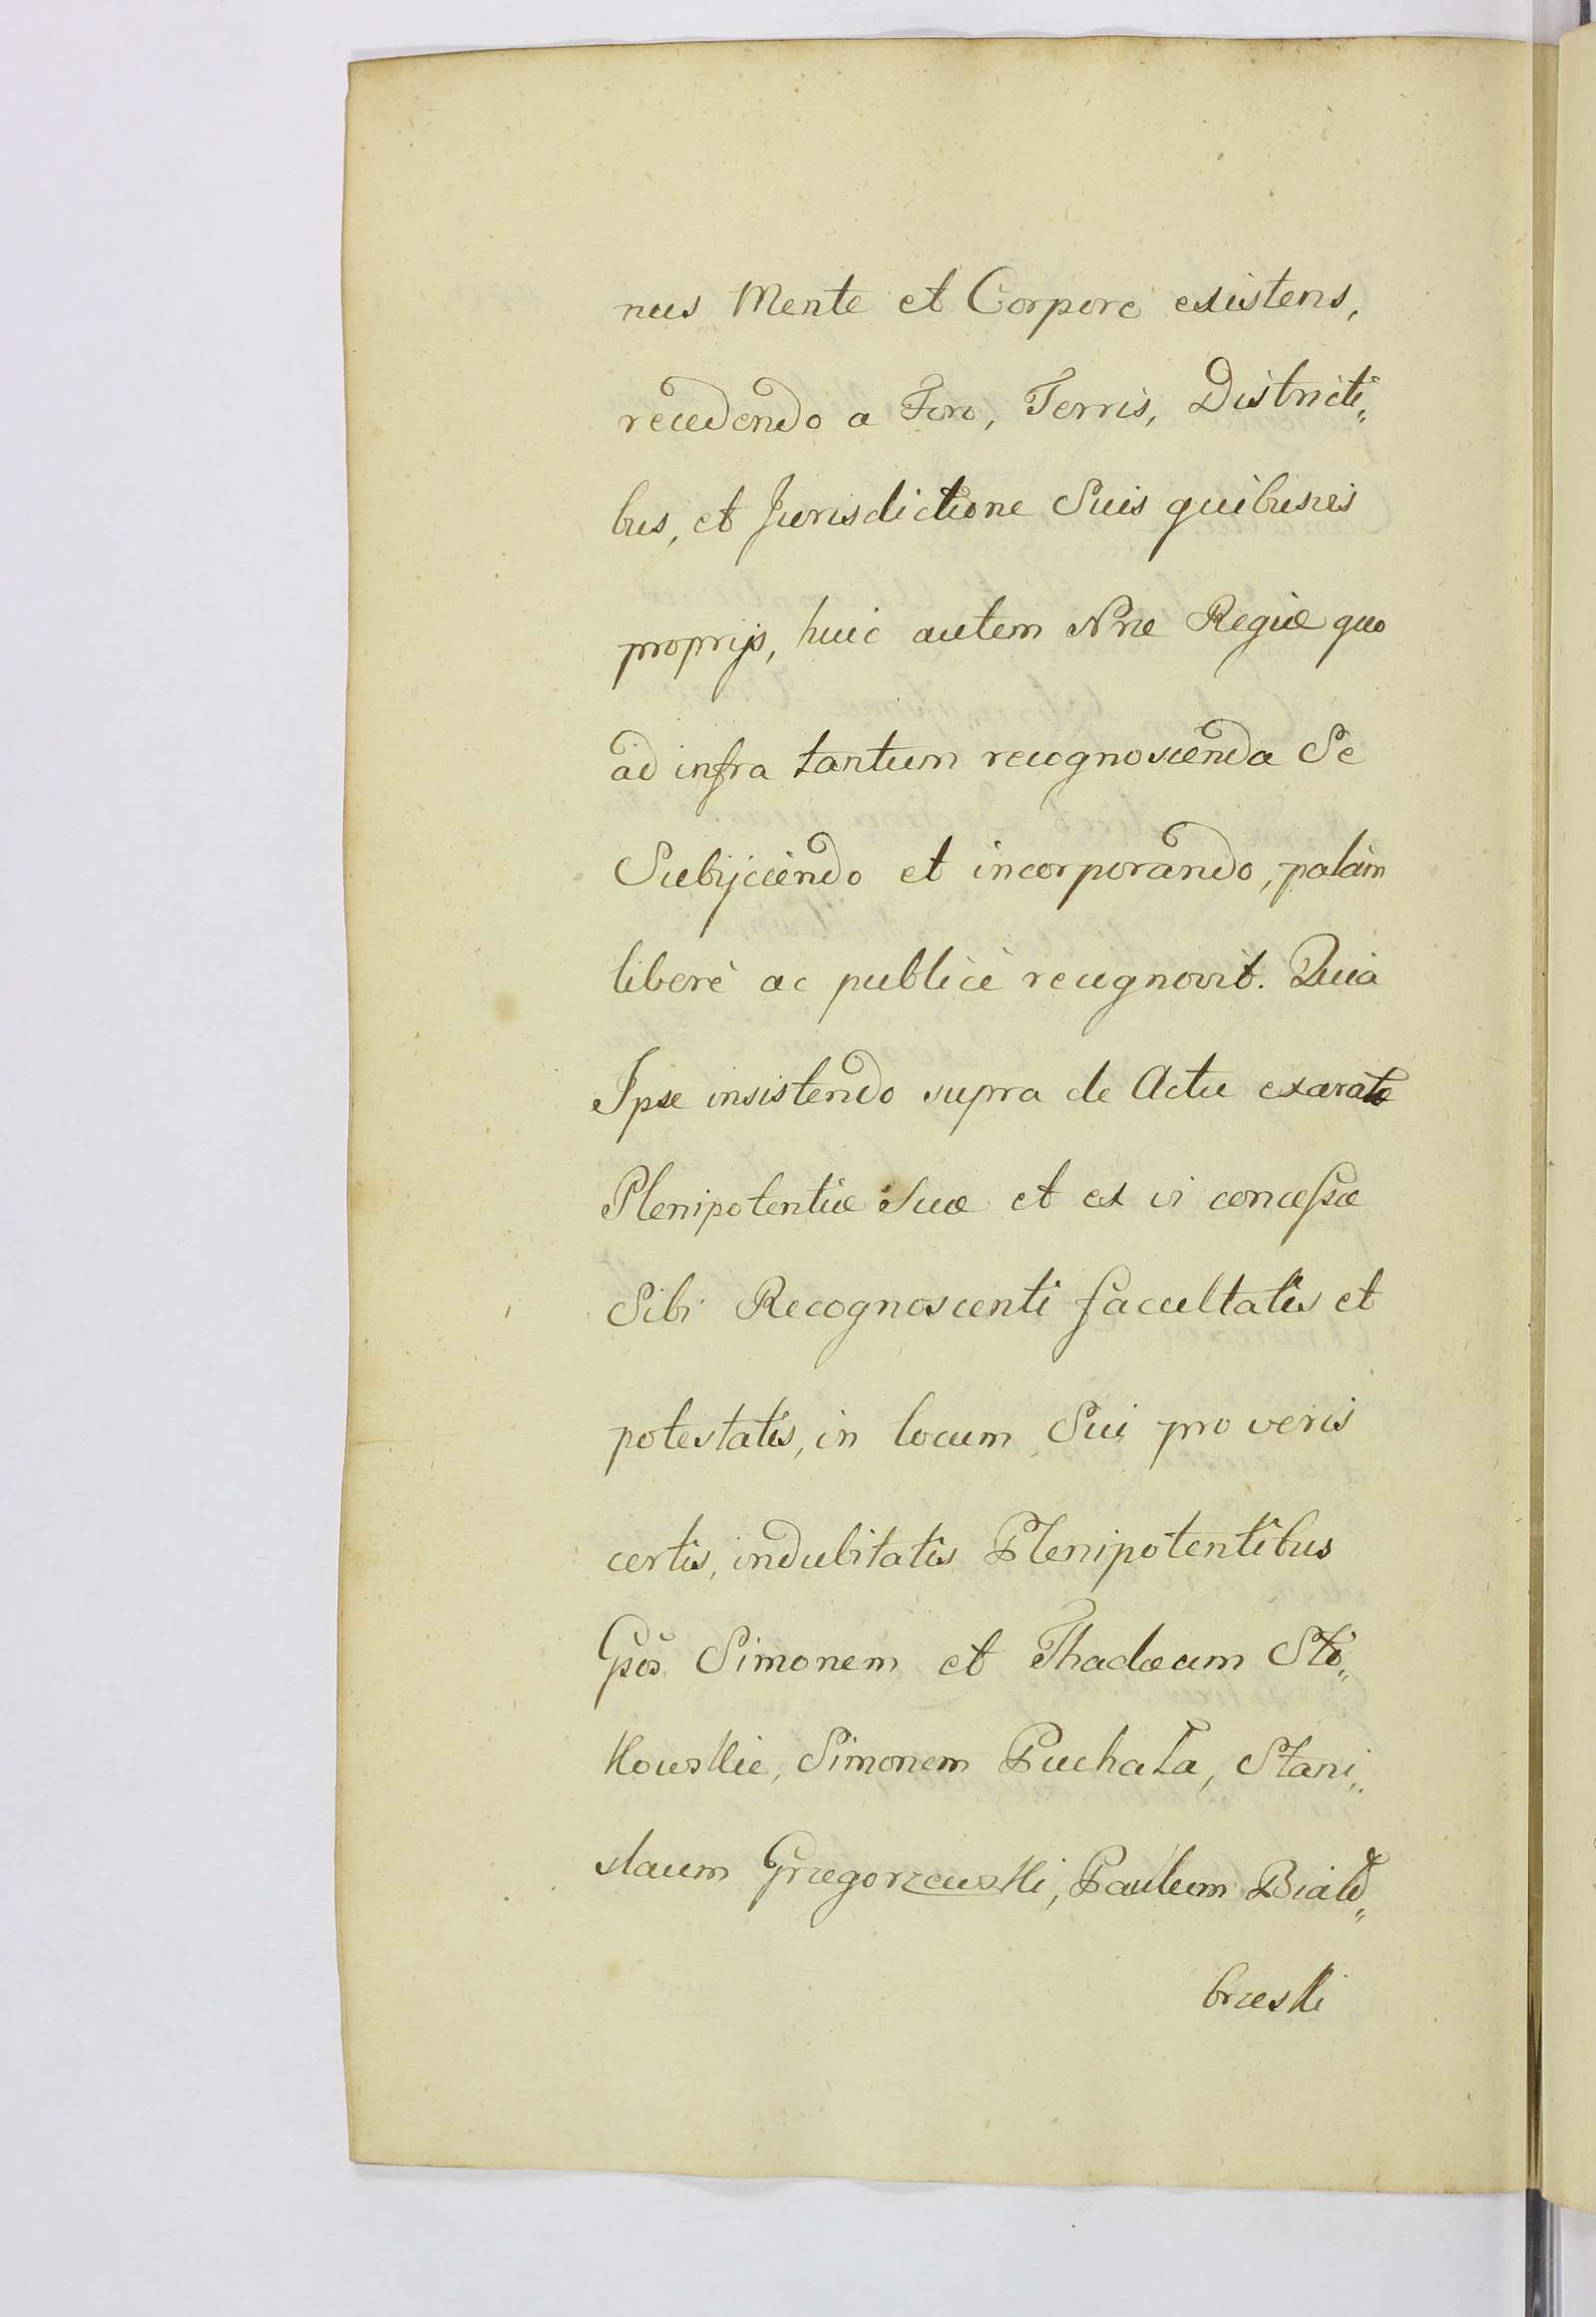 nus Mente et Corpore existens,
recedendo a Foro, Terris, Districti„
bus, et Jurisdictione Suis quibusvis
proprijs, huic autem Nrae Regiae quo
ad infra tantum recognoscenda Se
Subijciendo et incorporando, palam
liberè ac publicè recognovit. Quia
Ipse insistendo supra de Actu exarato
Plenipotentiae Suae et ex vi concessae
Sibi Recognoscenti facultatis et
potestatis, in locum Sui pro veris
certis, indubitatis Plenipotentibus
Gsos Simonem et Thadaeum Sto„
kowskie, Simonem Puchała, Stani„
slaum Grzegorzewski, Paulum Biało„
brzeski